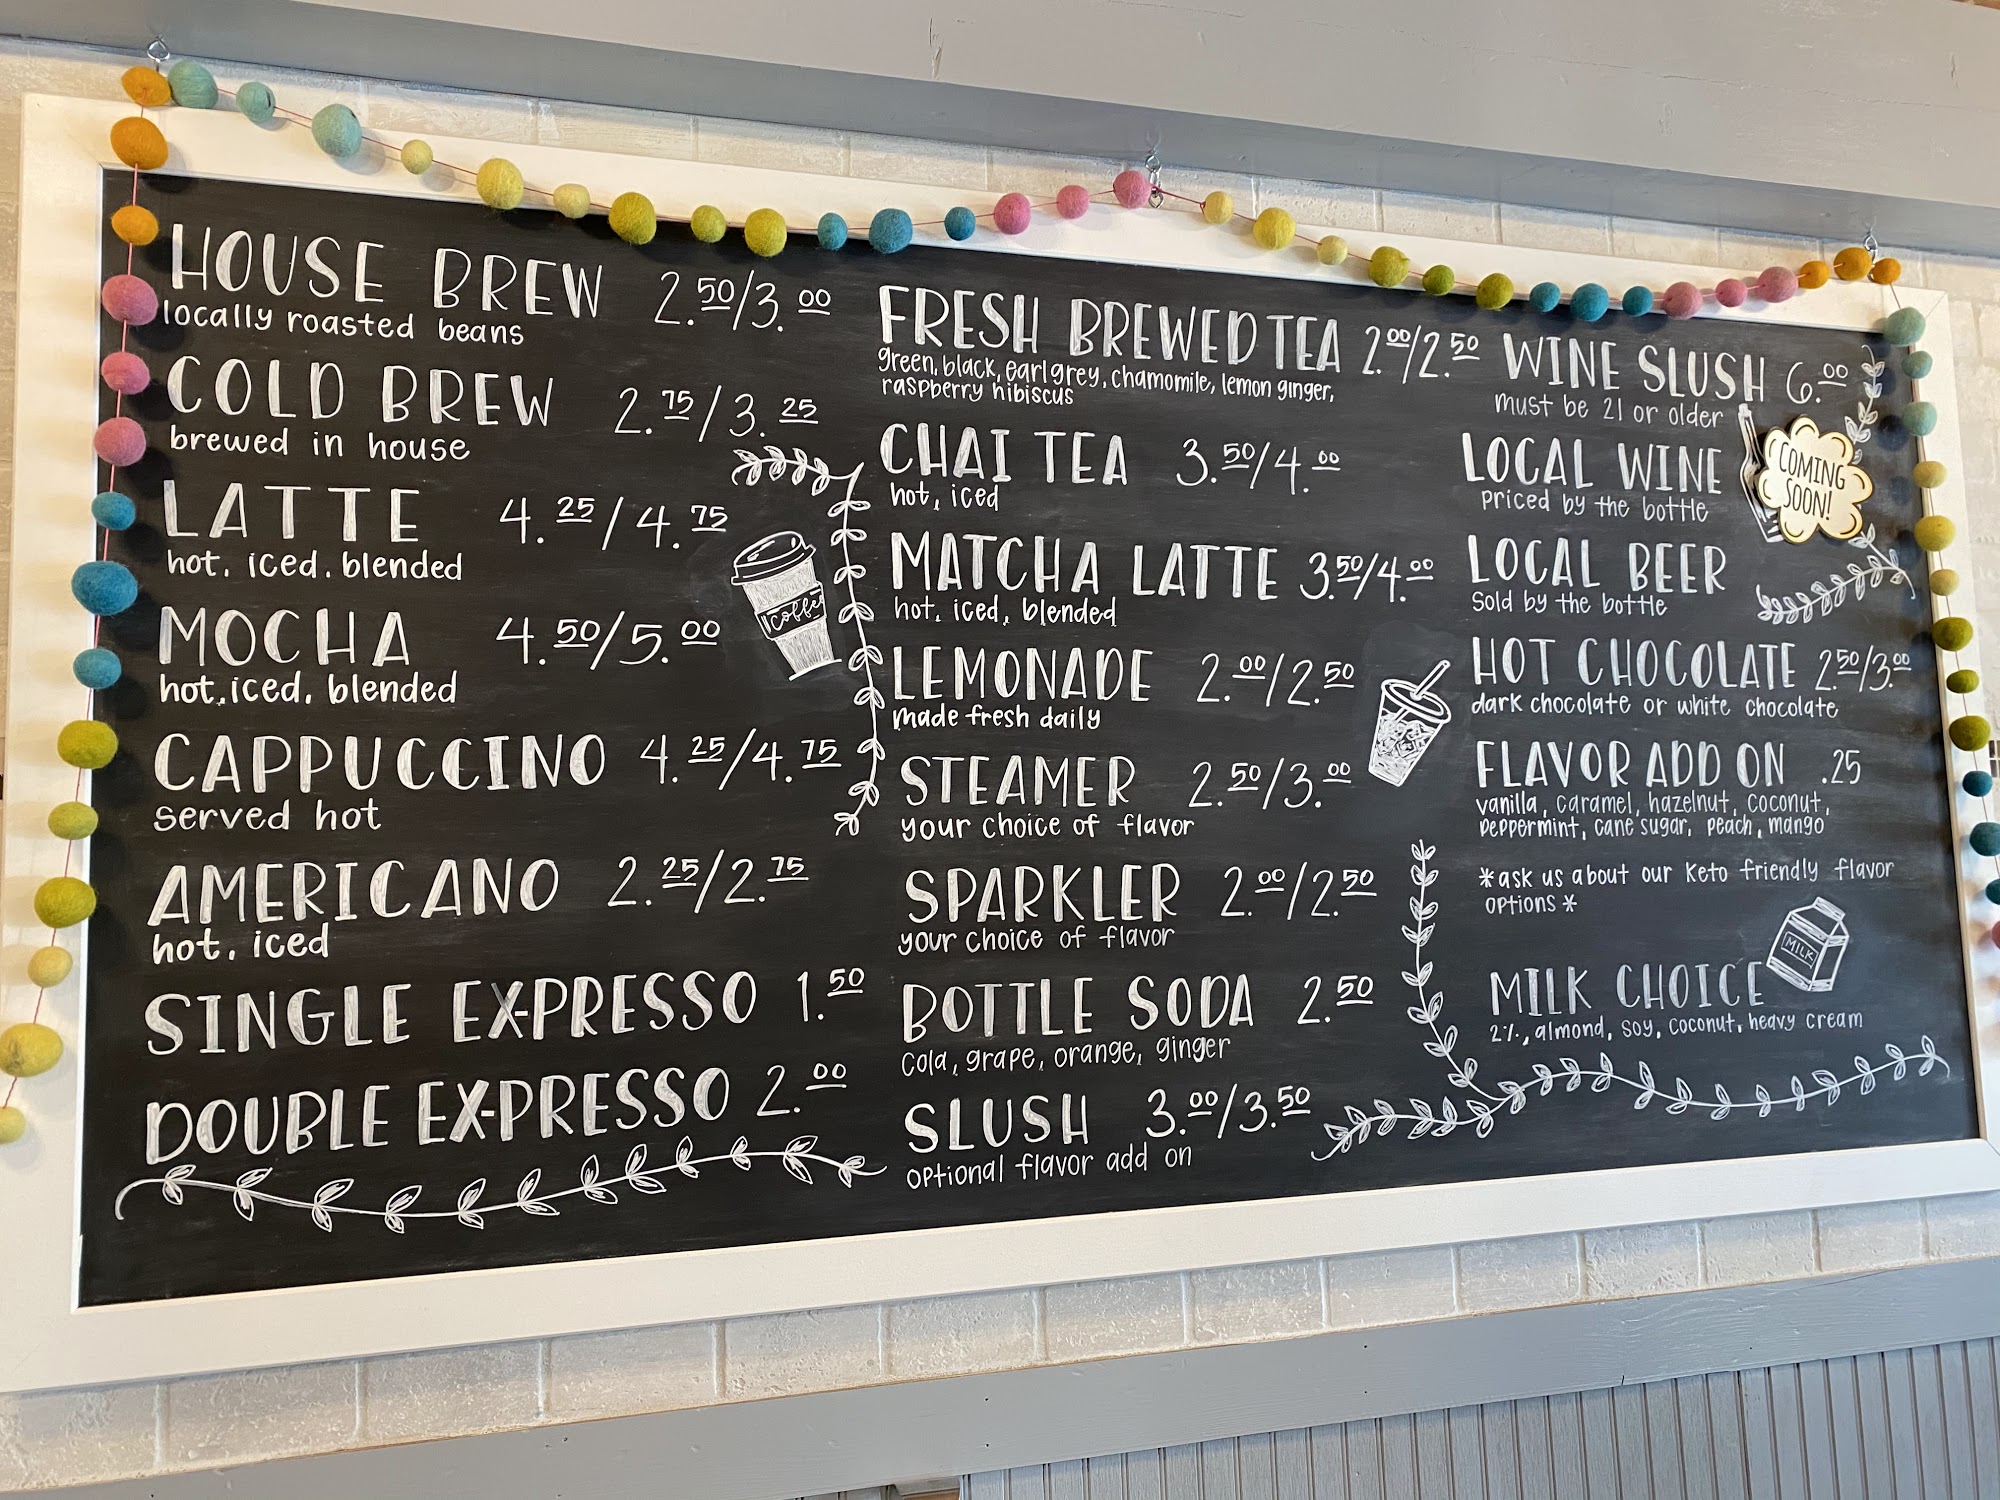 HOUSE BREW 2.50/3.00
locally roasted beans
COLD BREW 2.75/3.25
brewed in house
LATTE 4.25/4.75
hot, iced, blended
MOCHA 4.50/5.00
hot, iced, blended
CAPPUCCINO 4.25/4.75
served hot
AMERICANO 2.25/2.75
hot, iced
SINGLE EX-PRESSO 1.50
DOUBLE EX-PRESSO 2.00
coffee
FRESH BREWED TEA 2.00/2.50
green, black, earl grey, chamomile, lemon ginger,
raspberry hibiscus
CHAI TEA 3.50/4.00
hot, iced
MATCHA LATTE 3.50/4.00
hot, iced, blended
LEMONADE 2.00/2.50
made fresh daily
STEAMER 2.50/3.00
your choice of flavor
SPARKLER 2.00/2.50
your choice of flavor
BOTTLE SODA 2.50
cola, grape, orange, ginger
SLUSH 3.00/3.50
optional flavor add on
WINE SLUSH 6.00
must be 21 or older
LOCAL WINE
priced by the bottle
COMING
SOON!
LOCAL BEER
sold by the bottle
HOT CHOCOLATE 2.50/3.00
dark chocolate or white chocolate
FLAVOR ADD ON .25
vanilla, caramel, hazelnut, coconut,
peppermint, cane sugar, peach, mango
*ask us about our keto friendly flavor
options*
MILK
MILK CHOICE
2%, almond, soy, coconut, heavy cream